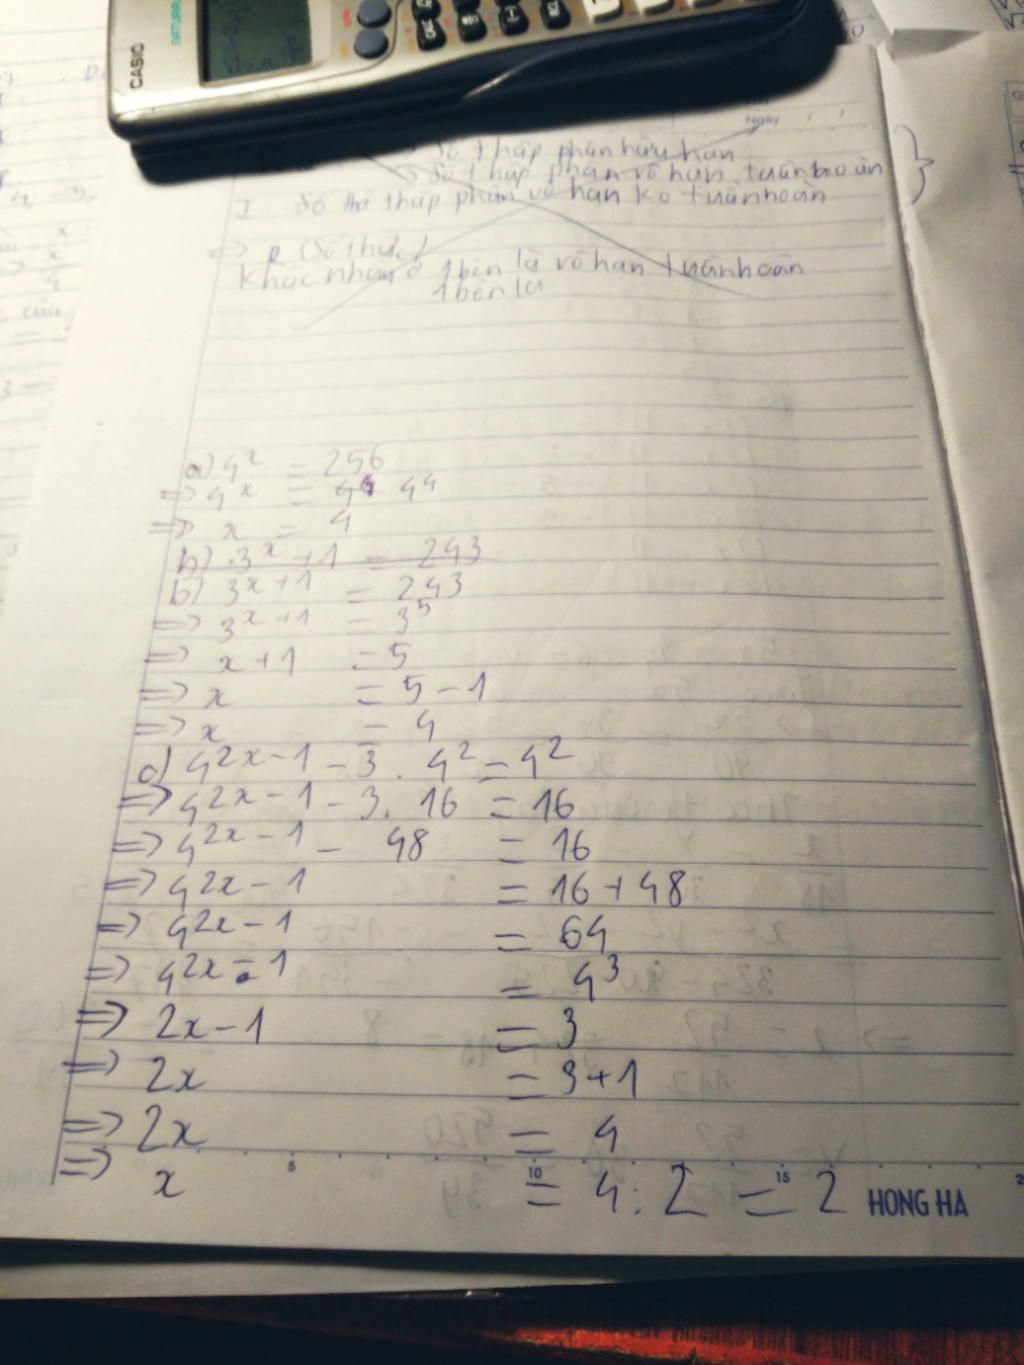 CASIO
NATURAL
Ngày
Số thập phân hữu hạn
=> Số thập phân vô hạn tuần hoàn
I Số thập phân vô hạn ko tuần hoàn
=> R (Số thực)
Khác nhau ở 1 bên là vô hạn tuần hoàn
1 bên là
a) 4^x = 256
=> 4^x = 4^4 4^4
=> x = 4
b) 3^x + 1 = 243
b) 3^{x+1} = 243
=> 3^{x+1} = 3^5
=> x + 1 = 5
=> x = 5 - 1
=> x = 4
c) 4^{2x-1} - 3 . 4^2 = 4^2
=> 4^{2x-1} - 3. 16 = 16
=> 4^{2x-1} - 48 = 16
=> 4^{2x-1} = 16 + 48
=> 4^{2x-1} = 64
=> 4^{2x-1} = 4^3
=> 2x - 1 = 3
=> 2x = 3 + 1
=> 2x = 4
5 10 15
=> x = 4 : 2 = 2
HONG HA